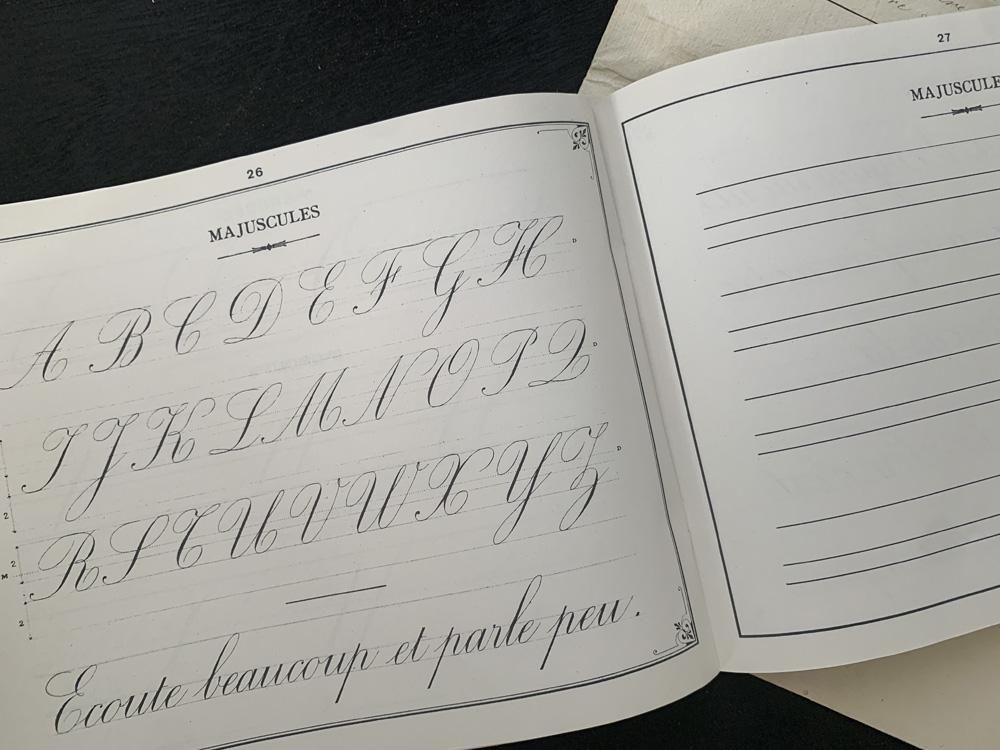 26
MAJUSCULES
A B C D E F G H
I J K L M N O P Q
R S T U V W X Y Z
Ecoute beaucoup et parle peu.
2
M 2
2
27
MAJUSCULE